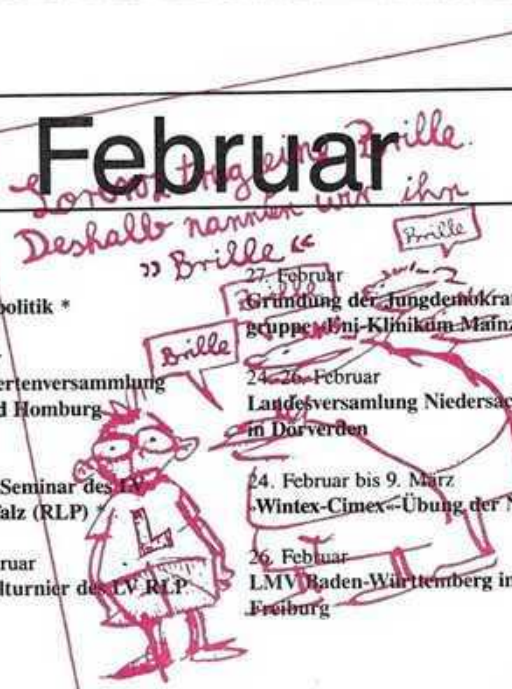 Februar
Lorenz trug eine Brille.
Deshalb nannten wir ihn
„Brille“
Brille
Brille
Brille
politik *
ertenversammlung
d Homburg
Seminar des LV
falz (RLP) *
ruar
lturnier des LV RLP
27. Februar
Gründung der Jungdemokra
gruppe Uni-Klinikum Mainz
24.-26. Februar
Landesversamlung Niedersac
in Dörverden
24. Februar bis 9. März
»Wintex-Cimex«-Übung der N
26. Februar
LMV Baden-Württemberg in
Freiburg
L